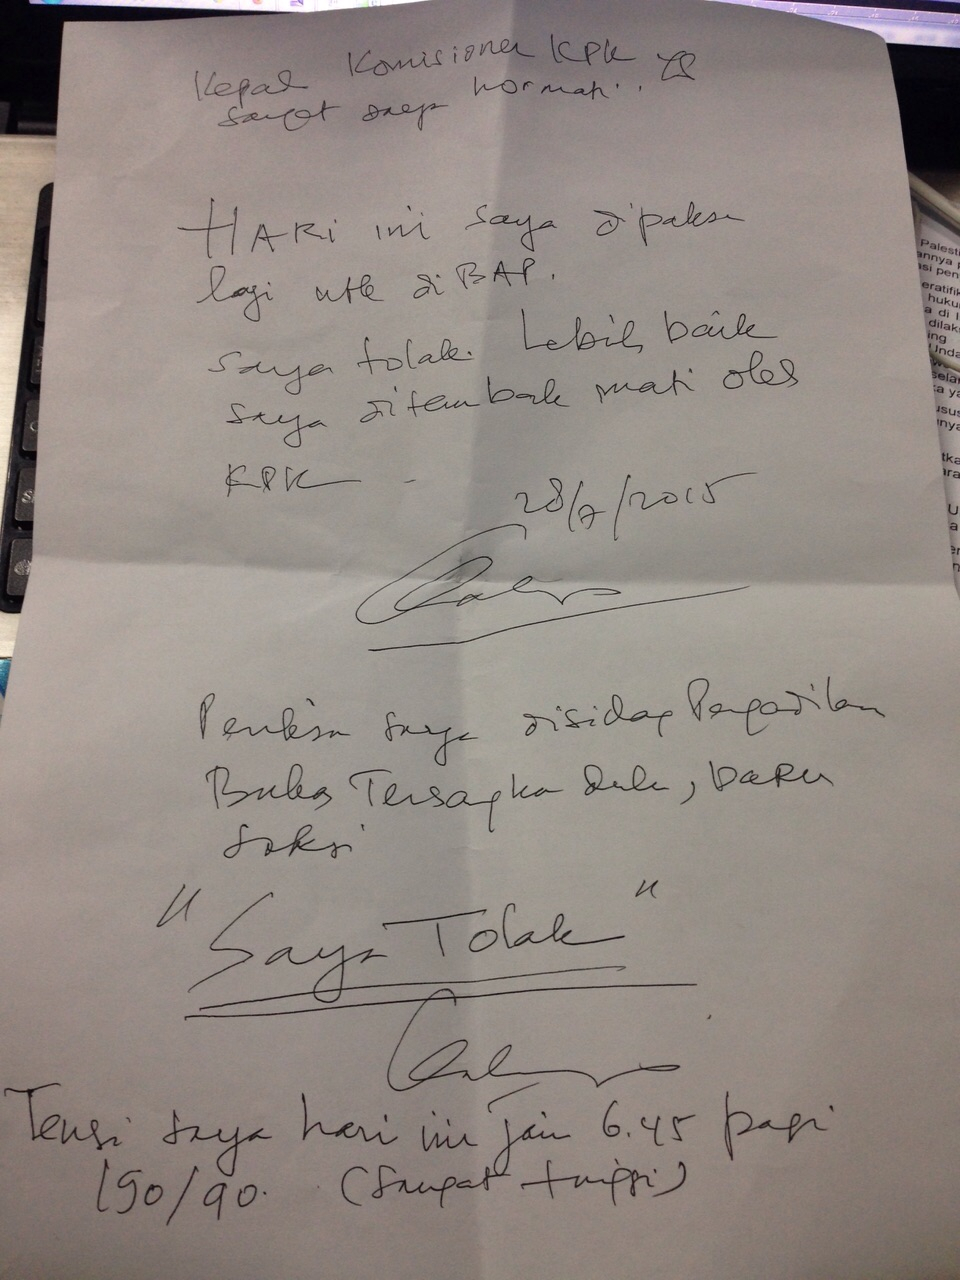 Kepad Komisioner KPK yg
sangat saya hormati..
HARi ini saya dipaksa
lagi utk di BAP.
saya tolak. Lebih baik
saya ditembak mati oleh
KPK
28/7/2015
Periksa saya disidag Pengadilan
Buka Tersagka dulu, baru
saksi
"Saya Tolak"
Tensi saya hari ini jam 6.45 pagi
190/90. (sangat tinggi)
Palesti
annya p
asi pen
eratifik
huku
a di I
dilak
ing
Unda
selar
a ya
usus
nnya
tka
ara